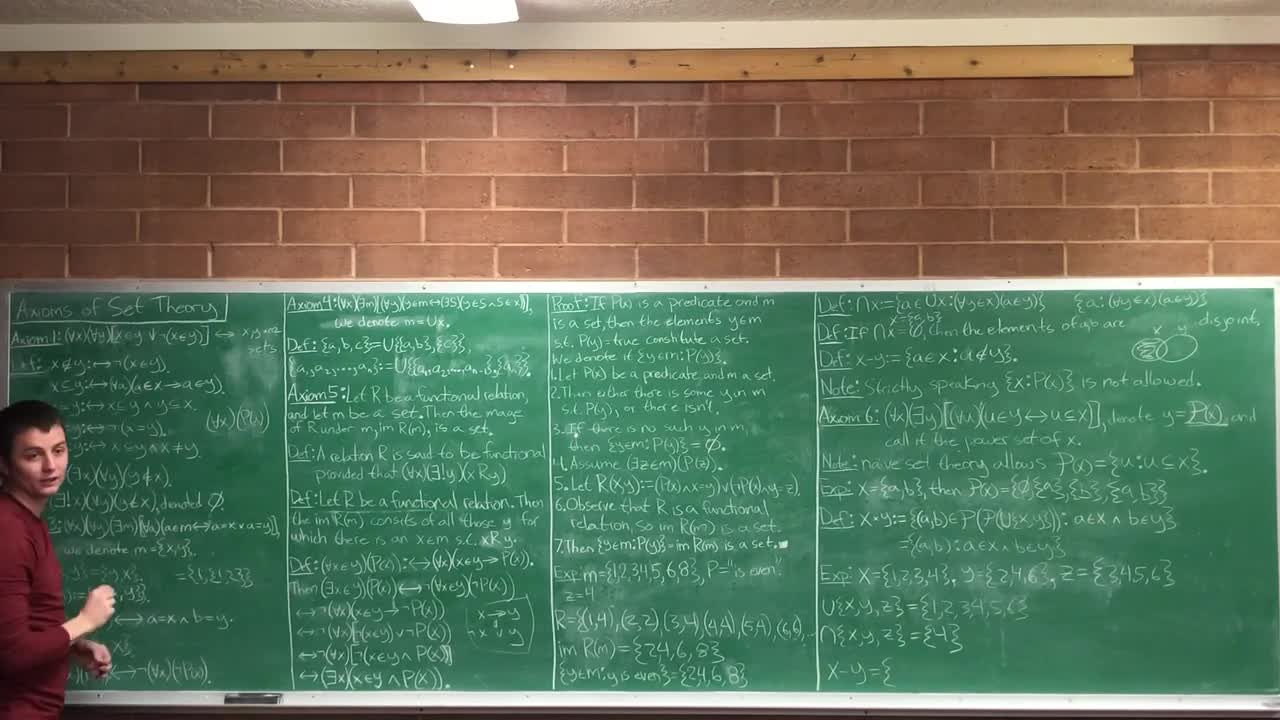 Axioms of Set Theory
Axiom 1: (∀x)(∀y)[x∈y ∨ ¬(x∈y)] ↔ x,y are sets
Def: x∉y :↔ ¬(x∈y).
x⊆y :↔ (∀a)(a∈x → a∈y).
:↔ x⊆y ∧ y⊆x.
:↔ ¬(x=y).
(∀x)(P(x))
:↔ x⊆y ∧ x≠y.
(∃x)(∀y)(y∉x).
(∃!x)(∀y)(y∉x), denoted ∅
3: (∀x)(∀y)(∃m)[(∀a)(a∈m ↔ a=x ∨ a=y)]
we denote m={x,y}.
={y,x}.
={1,{1,2,3}}
↔ a=x ∧ b=y.
↔ ¬(∀x)(¬P(x)).
Axiom 4: (∀x)(∃m)[(∀y)(y∈m ↔ (∃s)(y∈s ∧ s∈x))],
we denote m=∪x.
Def: {a,b,c}:=∪{{a,b},{c}},
{a₁,a₂,...,aₙ}:=∪{{a₁,a₂,...,aₙ₋₁},{aₙ}}.
Axiom 5: Let R be a functional relation,
and let m be a set. Then the image
of R under m, im R(m), is a set.
Def: A relation R is said to be functional
provided that (∀x)(∃!y)(xRy)
Def: Let R be a functional relation. Then
the im R(m) consists of all those y for
which there is an x∈m s.t. xRy.
Def: (∀x∈y)(P(x)) :↔ (∀x)(x∈y → P(x)).
Then (∃x∈y)(P(x)) ↔ ¬(∀x∈y)(¬P(x))
↔ ¬(∀x)(x∈y → ¬P(x))
↔ ¬(∀x)(¬(x∈y) ∨ ¬P(x))
↔ ¬(∀x)(¬(x∈y ∧ P(x)))
↔ (∃x)(x∈y ∧ P(x)).
x → y
¬x ∨ y
Proof: If P(x) is a predicate and m
is a set, then the elements y∈m
s.t. P(y)=true constitute a set.
We denote it {y∈m : P(y)}.
1. Let P(x) be a predicate and m a set.
2. Then either there is some y in m
s.t. P(y), or there isn't.
3. If there is no such y in m,
then {y∈m : P(y)} = ∅.
4. Assume (∃z∈m)(P(z)).
5. Let R(x,y) := (P(x) ∧ x=y) ∨ (¬P(x) ∧ y=z).
6. Observe that R is a functional
relation, so im R(m) is a set.
7. Then {y∈m : P(y)} = im R(m) is a set. ■
Exp: m={1,2,3,4,5,6,8}, P="is even"
z=4
R={(1,4),(2,2),(3,4),(4,4),(5,4),(6,6),...
im R(m)={2,4,6,8}
{y∈m : y is even}={2,4,6,8}
Def: ∩x:={a∈∪x : (∀y∈x)(a∈y)} {a : (∀y∈x)(a∈y)}
x={a,b}
Df: If ∩x=∅, then the elements of a,b are disjoint,
x y
Def: x−y:={a∈x : a∉y}.
Note: Strictly speaking {x : P(x)} is not allowed.
Axiom 6: (∀x)(∃y)[(∀u)(u∈y ↔ u⊆x)], denote y=P(x), and
call it the power set of x.
Note: naive set theory allows P(x)={u : u⊆x}.
Exp: X={a,b}, then P(x)={∅,{a},{b},{a,b}}
Def: X×y:={(a,b)∈P(P(∪{x,y})) : a∈x ∧ b∈y}
={(a,b) : a∈x ∧ b∈y}
Exp: X={1,2,3,4}, y={2,4,6}, Z={3,4,5,6}
∪{x,y,z}={1,2,3,4,5,6}
∩{x,y,z}={4}
X−y={